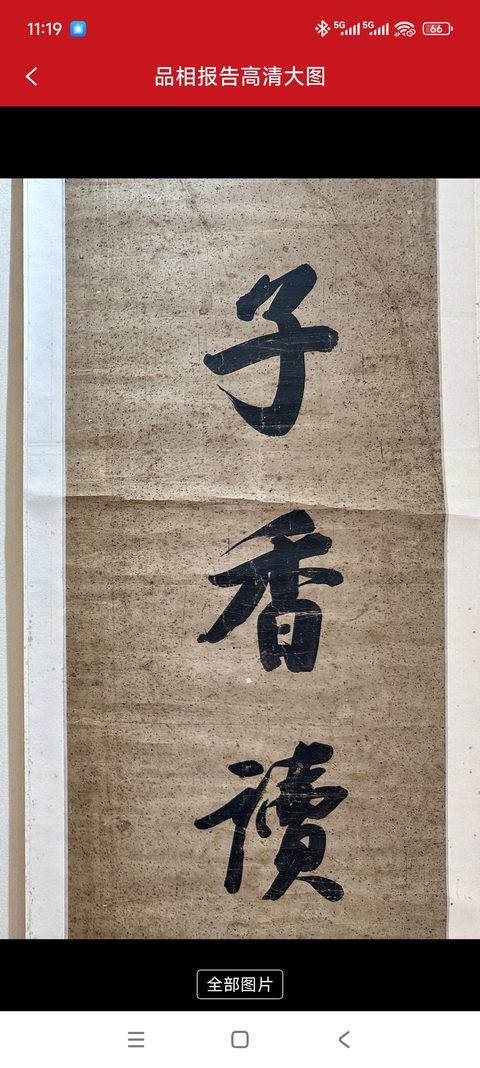 11:19
5G 5G 66
品相报告高清大图
子
香
讀
全部图片